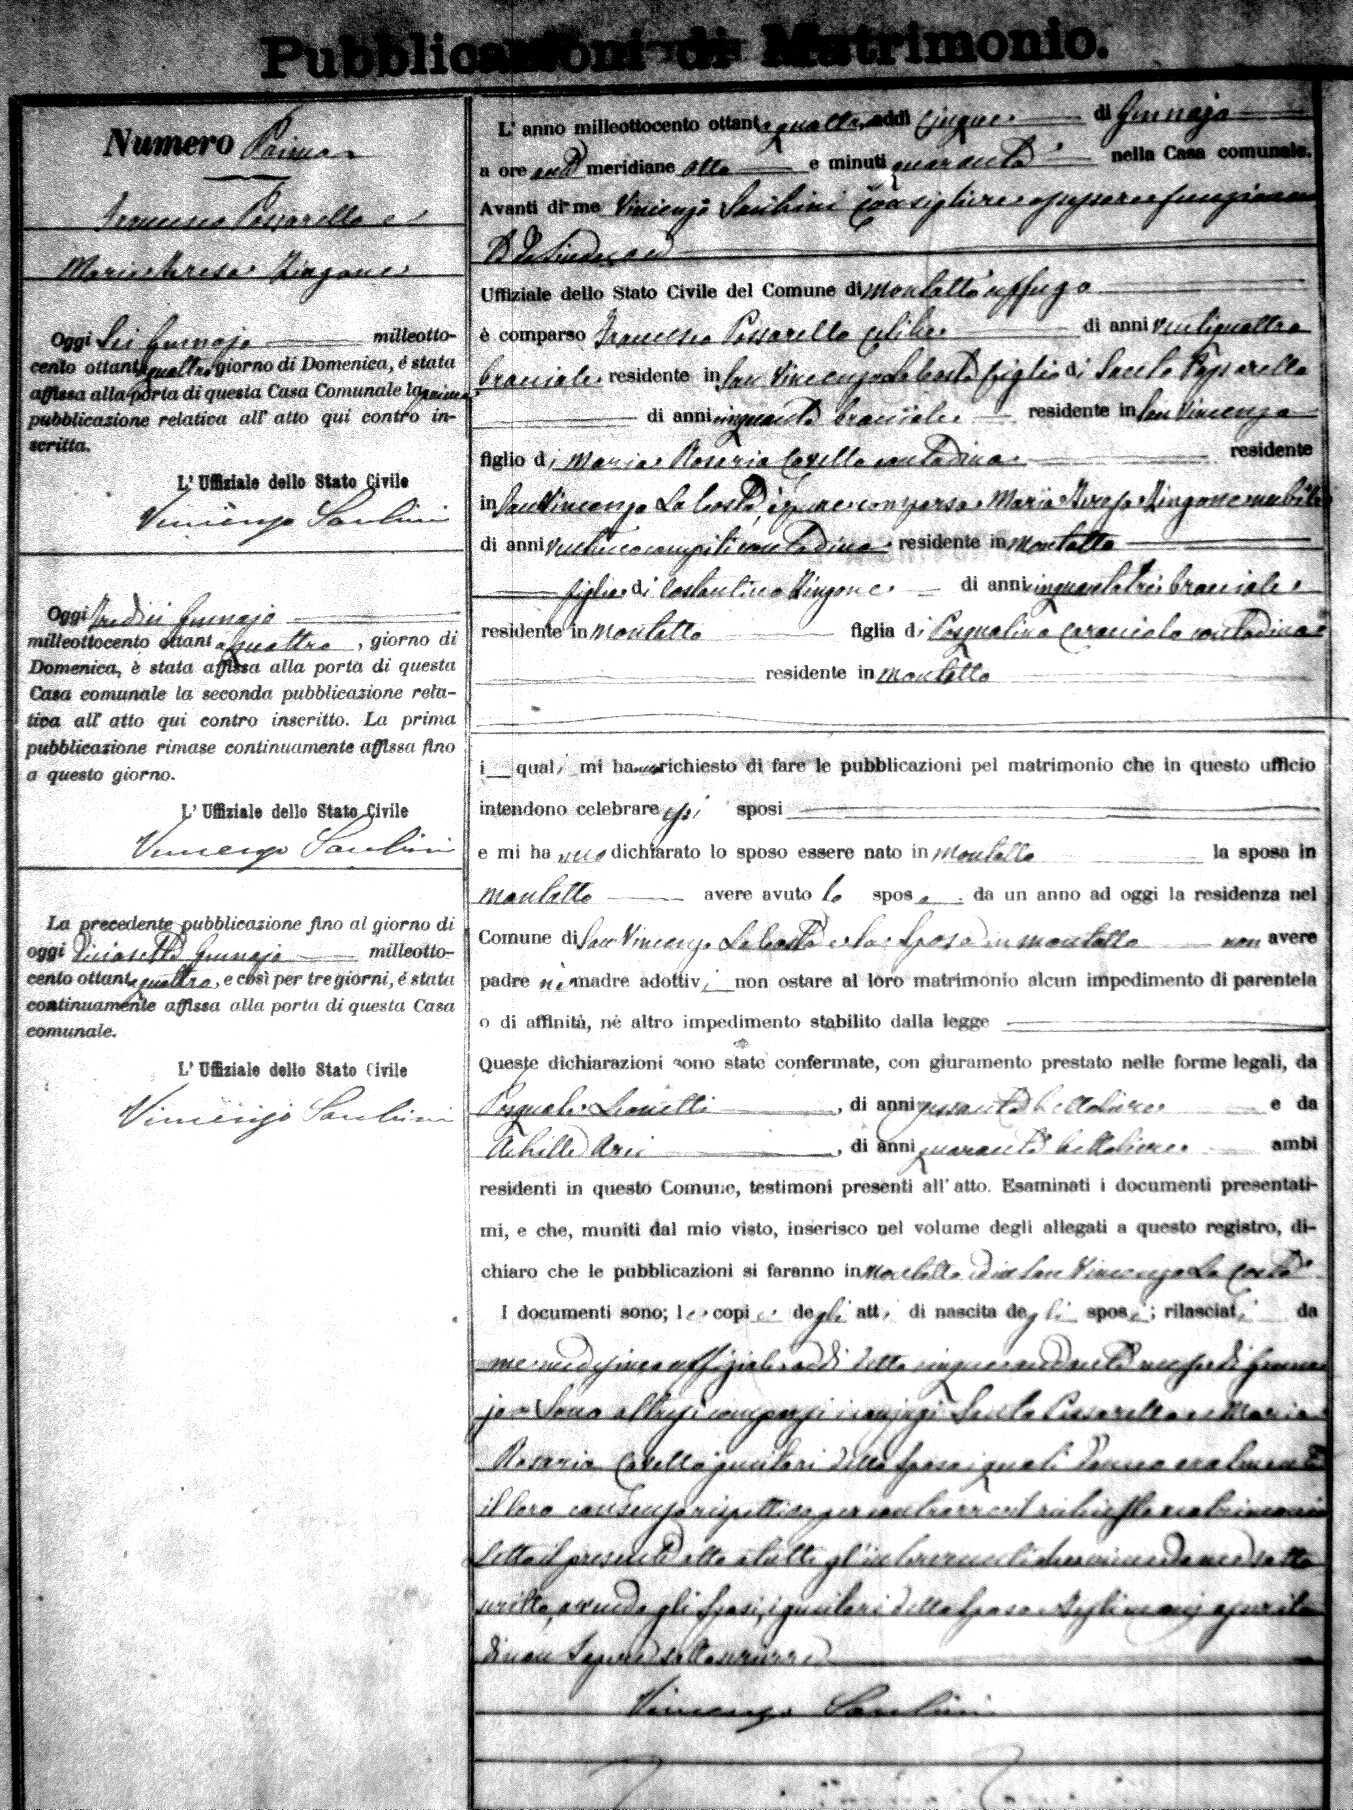 Pubblicazioni di Matrimonio.
Numero Primo
Francesco Passarello e
Maria Teresa Zingone
Oggi Sei Gennajo milleotto-
cento ottantaquattro giorno di Domenica, é stata
affissa alla porta di questa Casa Comunale la prima
pubblicazione relativa all' atto qui contro in-
scritta.
L' Uffiziale dello Stato Civile
Vincenzo
Oggi tredici Gennajo
milleottocento ottantaquattro, giorno di
Domenica, è stata affissa alla porta di questa
Casa comunale la seconda pubblicazione rela-
tiva all' atto qui contro inscritto. La prima
pubblicazione rimase continuamente affissa fino
a questo giorno.
L' Uffiziale dello Stato Civile
Vincenzo
La precedente pubblicazione fino al giorno di
oggi diciasette Gennajo milleotto-
cento ottantaquattro, e così per tre giorni, é stata
continuamente affissa alla porta di questa Casa
comunale.
L' Uffiziale dello Stato Civile
Vincenzo
L' anno milleottocento ottantaquattro, addì cinque di Gennajo
a ore anti meridiane otto e minuti quaranta nella Casa comunale.
Avanti di me Vincenzo Consigliere funzionan
te da Sindaco
Uffiziale dello Stato Civile del Comune di Montalto uffugo
è comparso Francesco Passarello celibe di anni ventiquattro
bracciale residente in San Vincenzo La Costa figlio di Santo Passarello
di anni cinquanta bracciale residente in San Vincenzo
figlio di Maria Rosaria Covello contadina residente
in San Vincenzo La Costa, è pure comparsa Maria Teresa Zingone nubile
di anni compiti contadina residente in Montalto
figlia di Costantino Zingone di anni cinquantatre bracciale
residente in Montalto figlia di Pasqualina Caracciolo contadina
residente in Montalto
i quali mi hanno richiesto di fare le pubblicazioni pel matrimonio che in questo ufficio
intendono celebrare essi sposi
e mi hanno dichiarato lo sposo essere nato in Montalto la sposa in
Montalto avere avuto lo sposo da un anno ad oggi la residenza nel
Comune di San Vincenzo La Costa e la Sposa in Montalto non avere
padre nè madre adottivi non ostare al loro matrimonio alcun impedimento di parentela
o di affinità, né altro impedimento stabilito dalla legge
Queste dichiarazioni sono state confermate, con giuramento prestato nelle forme legali, da
Pasquale Leonetti, di anni sessanta bettoliere e da
Achille Arci, di anni quaranta bettoliere ambi
residenti in questo Comune, testimoni presenti all' atto. Esaminati i documenti presentati-
mi, e che, muniti dal mio visto, inserisco nel volume degli allegati a questo registro, di-
chiaro che le pubblicazioni si faranno in Montalto ed in San Vincenzo La Costa
I documenti sono; le copie degli atti di nascita degli sposi; rilasciati da
me medesimo uffiziale addì detto cinque andante mese di Genna
jo Sono altresì comparsi i conjugi Santo Passarello e Maria
Rosaria Covello genitori dello Sposo i quali danno oralmente
il loro consenso rispettivo per contrarre il richiesto matrimonio
Letto il presente atto a tutti gl'intervenuti da me sotto
scritto, avendo gli Sposi, i genitori dello Sposo
di non sapere sottoscrivere
Vincenzo